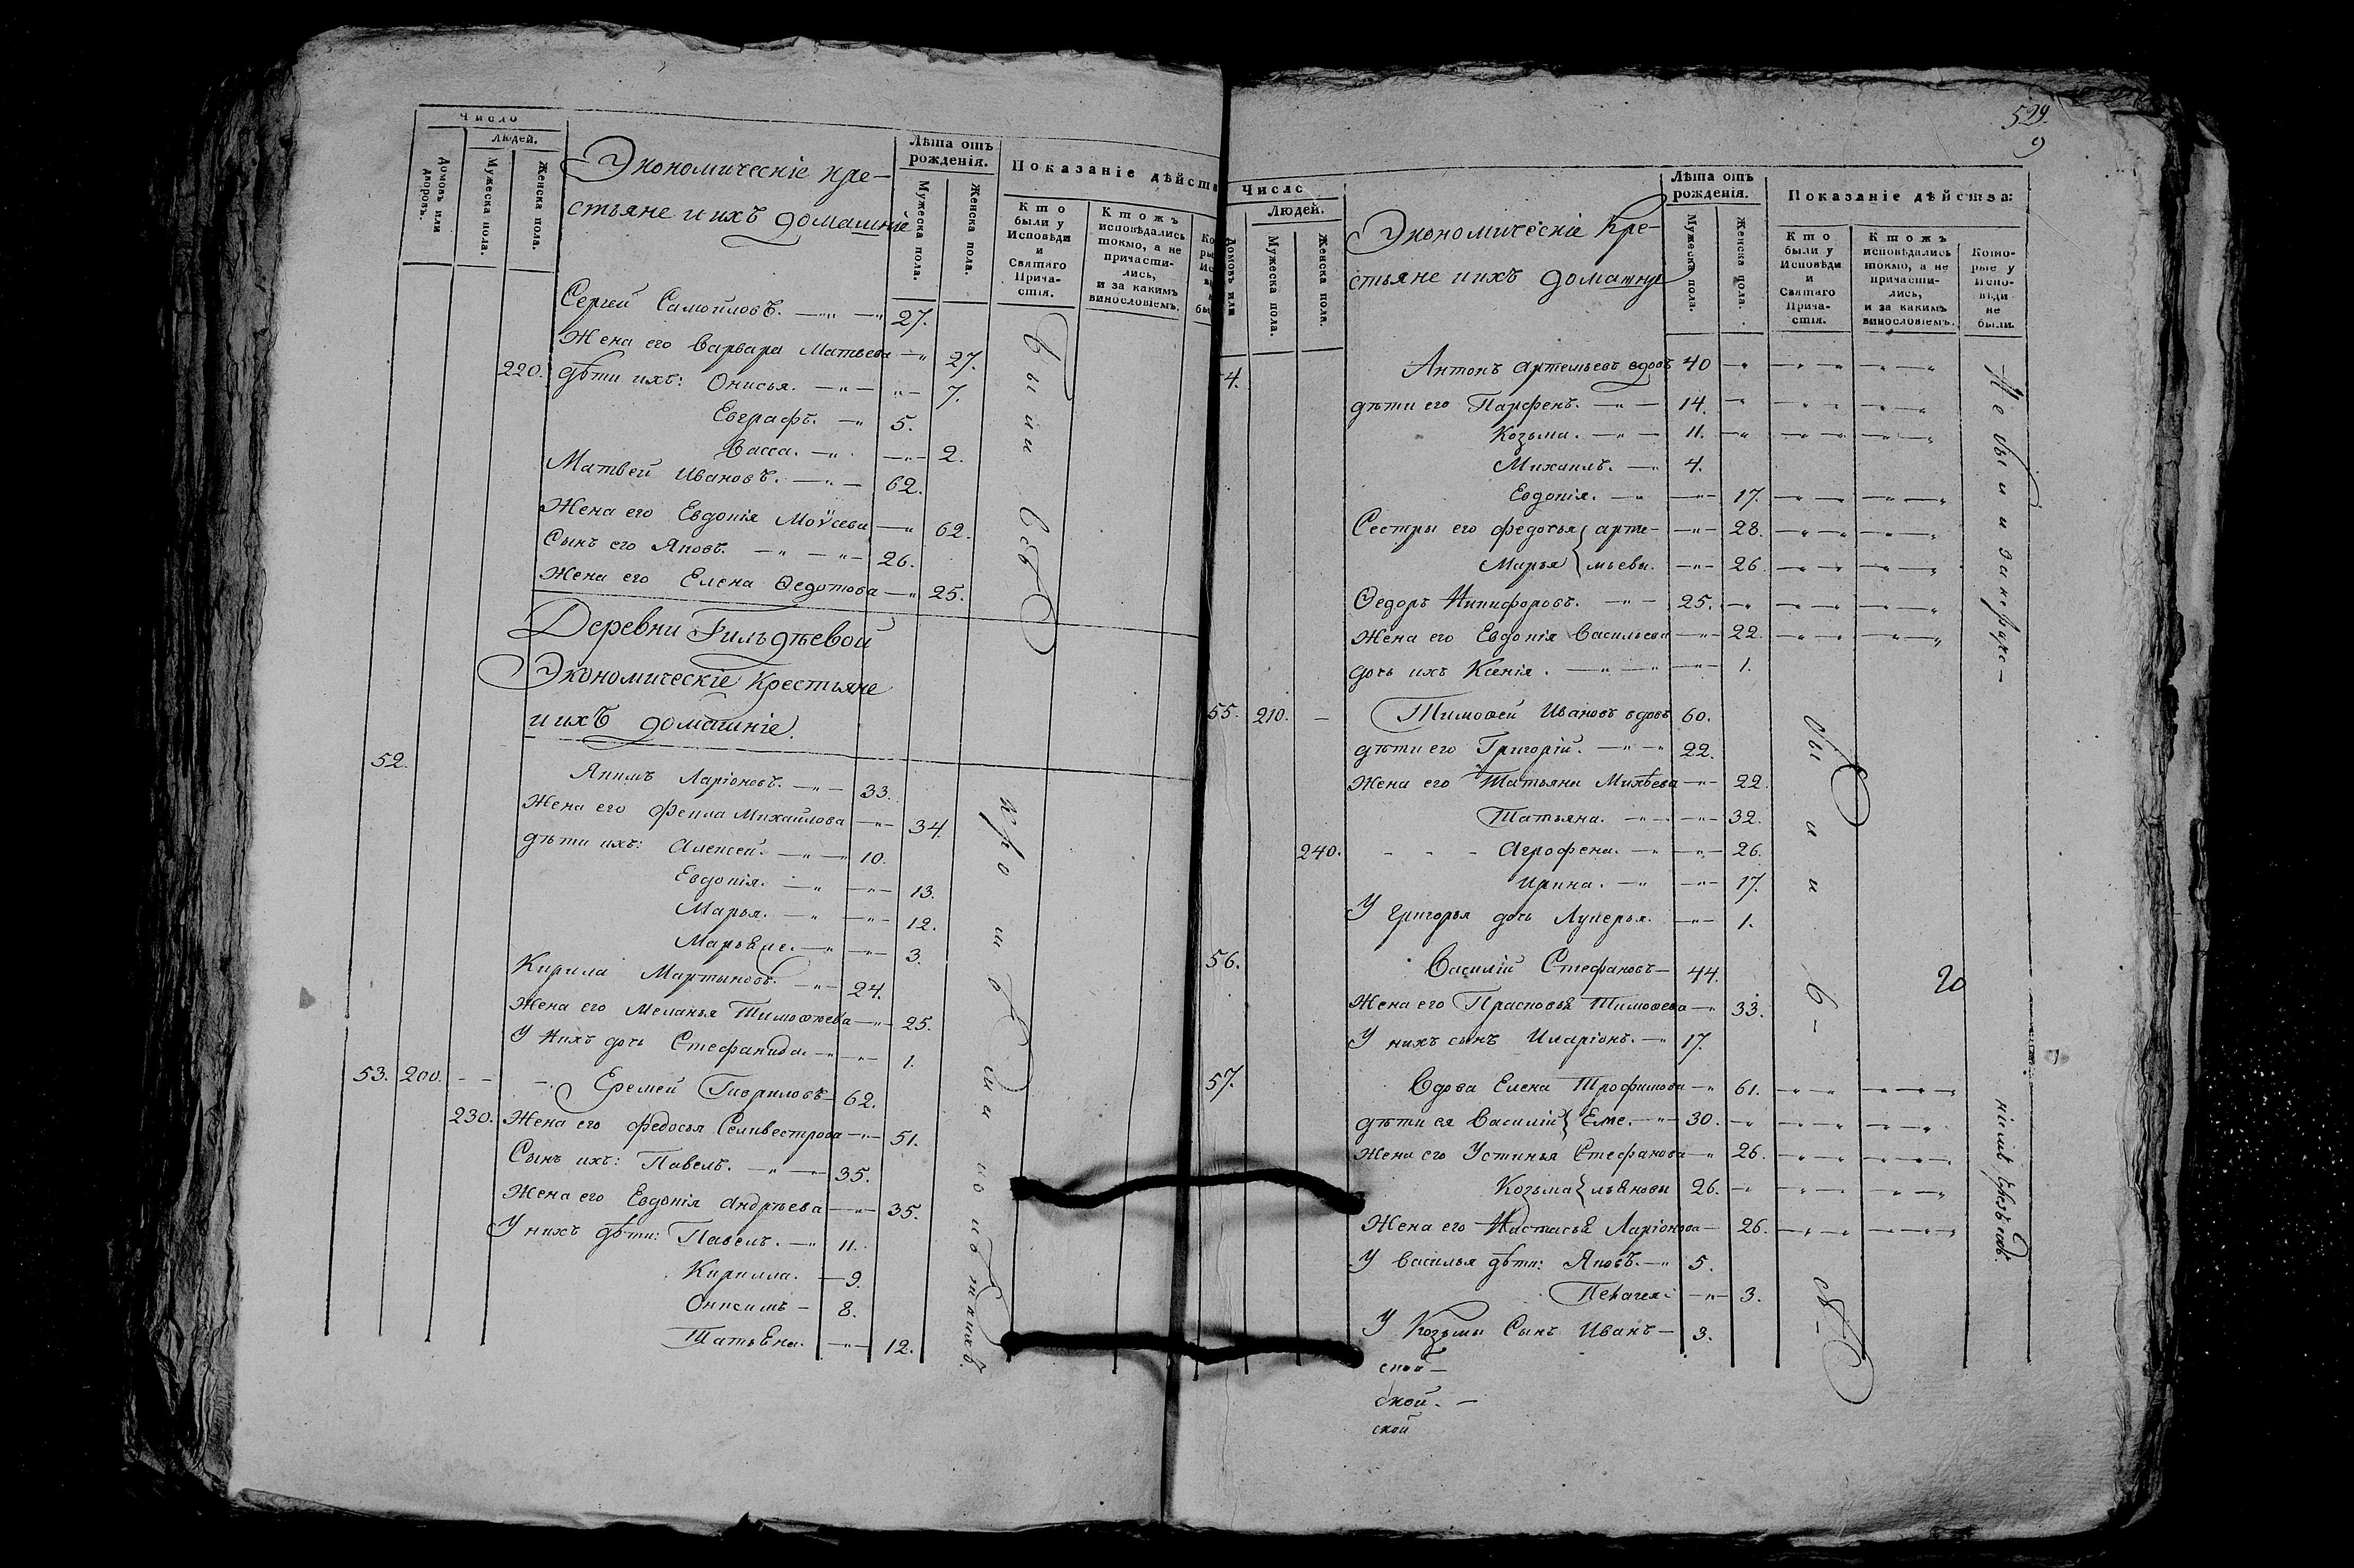 Число
Людей.
Домовъ или дворовъ.
Мужеска пола.
Женска пола.
Экономическіе кре-
стьяне и ихъ домашніе
Лѣта отъ рожденія.
Мужеска пола.
Женска пола.
Показаніе дѣйств
Кто были у Исповѣди и Святаго Прича-стія.
Ктожъ исповѣдались токмо, а не причасти-лись, и за какимъ винословіемъ.
Сергей Самойловъ. 27.
Жена его Варвара Матвева 27.
220. дѣти ихъ: Онисья. 7.
Евграфъ. 5.
Васса. 2.
Матвей Ивановъ. 62.
Жена его Евдокія Моѵсева 62.
Сынъ его Яковъ. 26.
Жена его Елена Ѳедотова 25.
были всѣ
Деревни Гильдѣевой
Экономическіе Крестьяне
и ихъ домашніе.
52. Якимъ Ларіоновъ. 33.
Жена его Фекла Михайлова 34.
дѣти ихъ: Алексей. 10.
Евдокія. 13.
Марья. 12.
Марья же. 3.
Кирила Мартыновъ. 24.
Жена его Меланья Тимоѳѣева 25.
У нихъ дочь Стефанида. 1.
53. 200. Еремей Гавриловъ 62.
230. Жена его Федосья Селивестрова 51.
Сынъ ихъ: Павелъ. 35.
Жена его Евдокія Андрѣева 35.
У нихъ дѣти: Павелъ. 11.
Кирилла. 9.
Онисимъ 8.
Татьяна. 12.
529.
9
Число
Людей.
Домовъ или
Мужеска пола.
Женска пола.
Экономическіе Кре-
стьяне и ихъ домашнуе
Лѣта отъ рожденія.
Мужеска пола.
Женска пола.
Показаніе дѣйства:
Кто были у Исповѣди и Святаго Прича-стія.
Ктожъ исповѣдались токмо, а не причасти-лись, и за какимъ винословіемъ.
Кото-рые у Испо-вѣди не были.
4. Антонъ Артемьевъ вдовъ 40
дѣти его Парфенъ. 14.
Козьма. 11.
Михаилъ. 4.
Евдокія. 17.
Сестры его Федосья } Арте- 28.
Марья } мьевы. 26.
Ѳедоръ Никифоровъ. 25.
Жена его Евдокія Васильева 22.
дочь ихъ Ксенія. 1.
55. 210. Тимоѳей Ивановъ вдовъ 60.
дѣти его Григорій. 22.
Жена его Татьяна Михѣева 22.
Татьяна. 32.
240. Агрофена. 26.
Ирина. 17.
У Григорья дочь Лукерья. 1.
56. Василій Стефановъ 44.
Жена его Прасковья Тимоѳева 33.
У нихъ сынъ Иларіонъ. 17.
57. Вдова Елена Трофимова 61.
дѣти ея Василій } Еме. 30.
Жена его Устинья Стефанова 26.
Козьма } льяновы 26.
Жена его Настасья Ларіонова 26.
У Василья дѣти: Яковъ. 5.
Пелагея 3.
У Козьмы Сынъ Иванъ 3.
ской
ской.
ской
Не были за
были
20